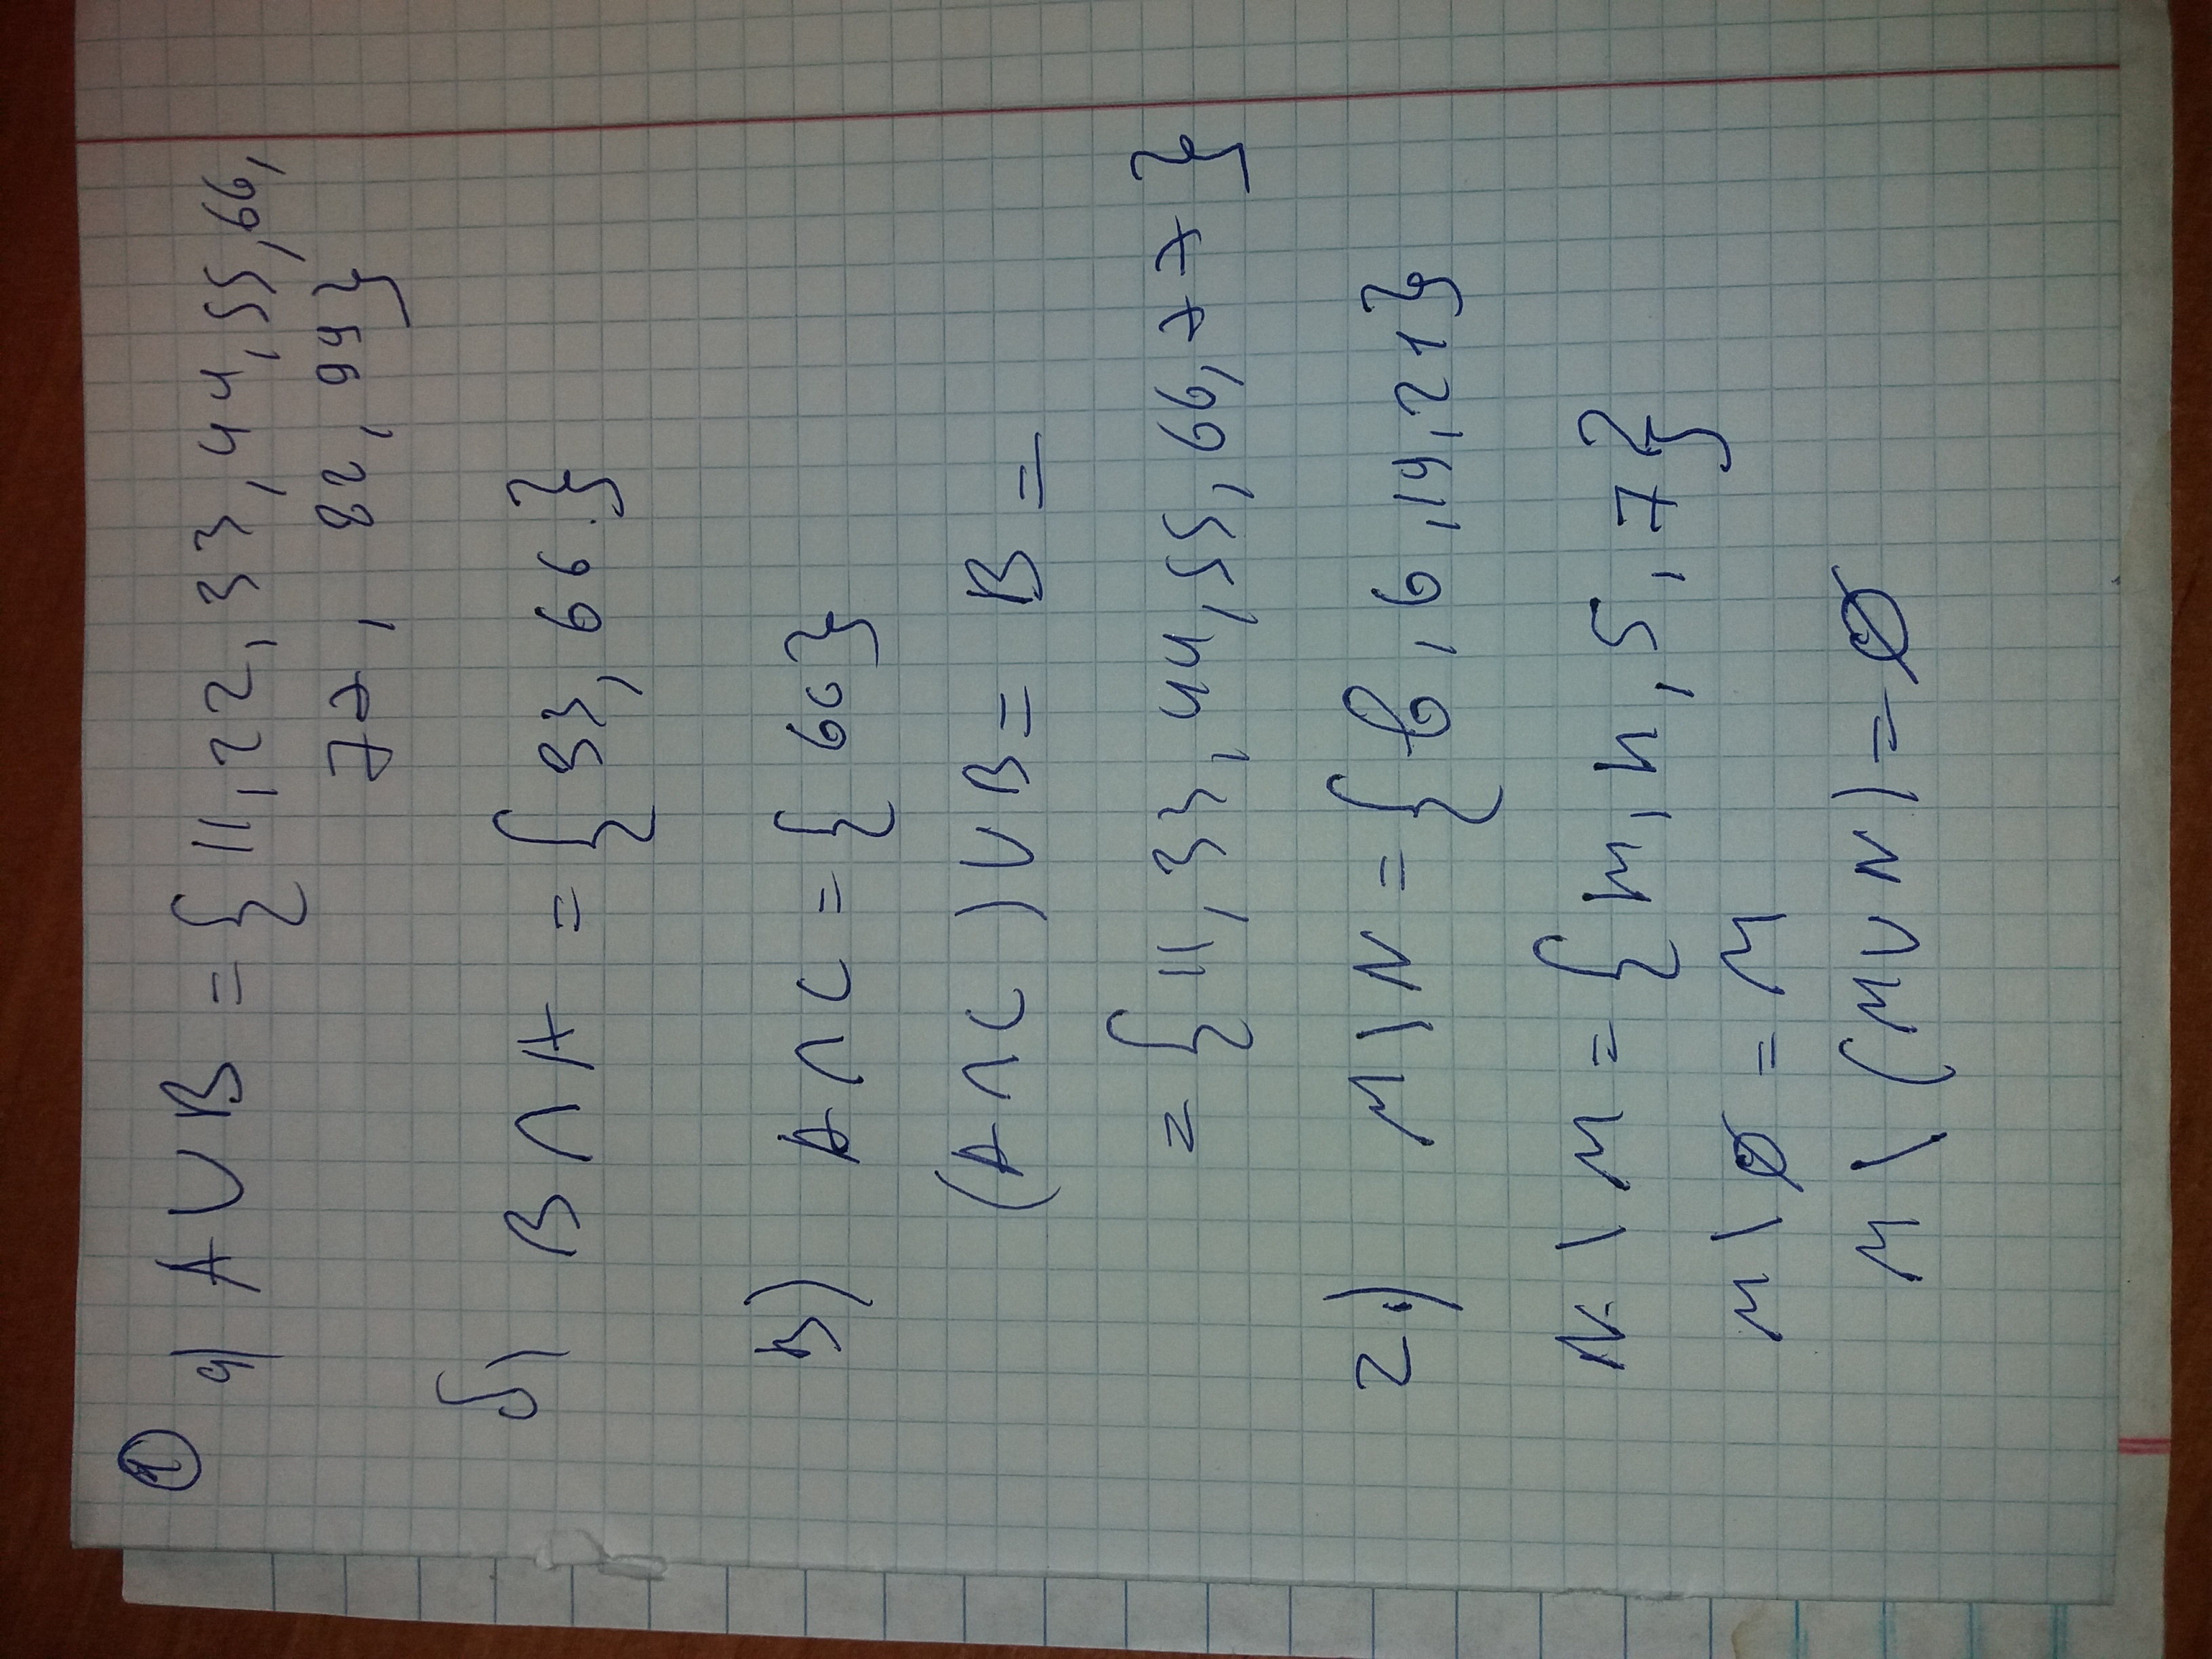 1
а) A ∪ B = {11, 22, 33, 44, 55, 66,
77, 82, 99}
б) B ∩ A = {33, 66.}
в) A ∩ C = {66}
(A ∩ C) ∪ B = B =
= {11, 33, 44, 55, 66, 77}
г) M \ N = {l, 6, 19, 21}
N \ M = {m, n, 5, 7}
M \ ∅ = M
M \ (M ∪ N) = ∅